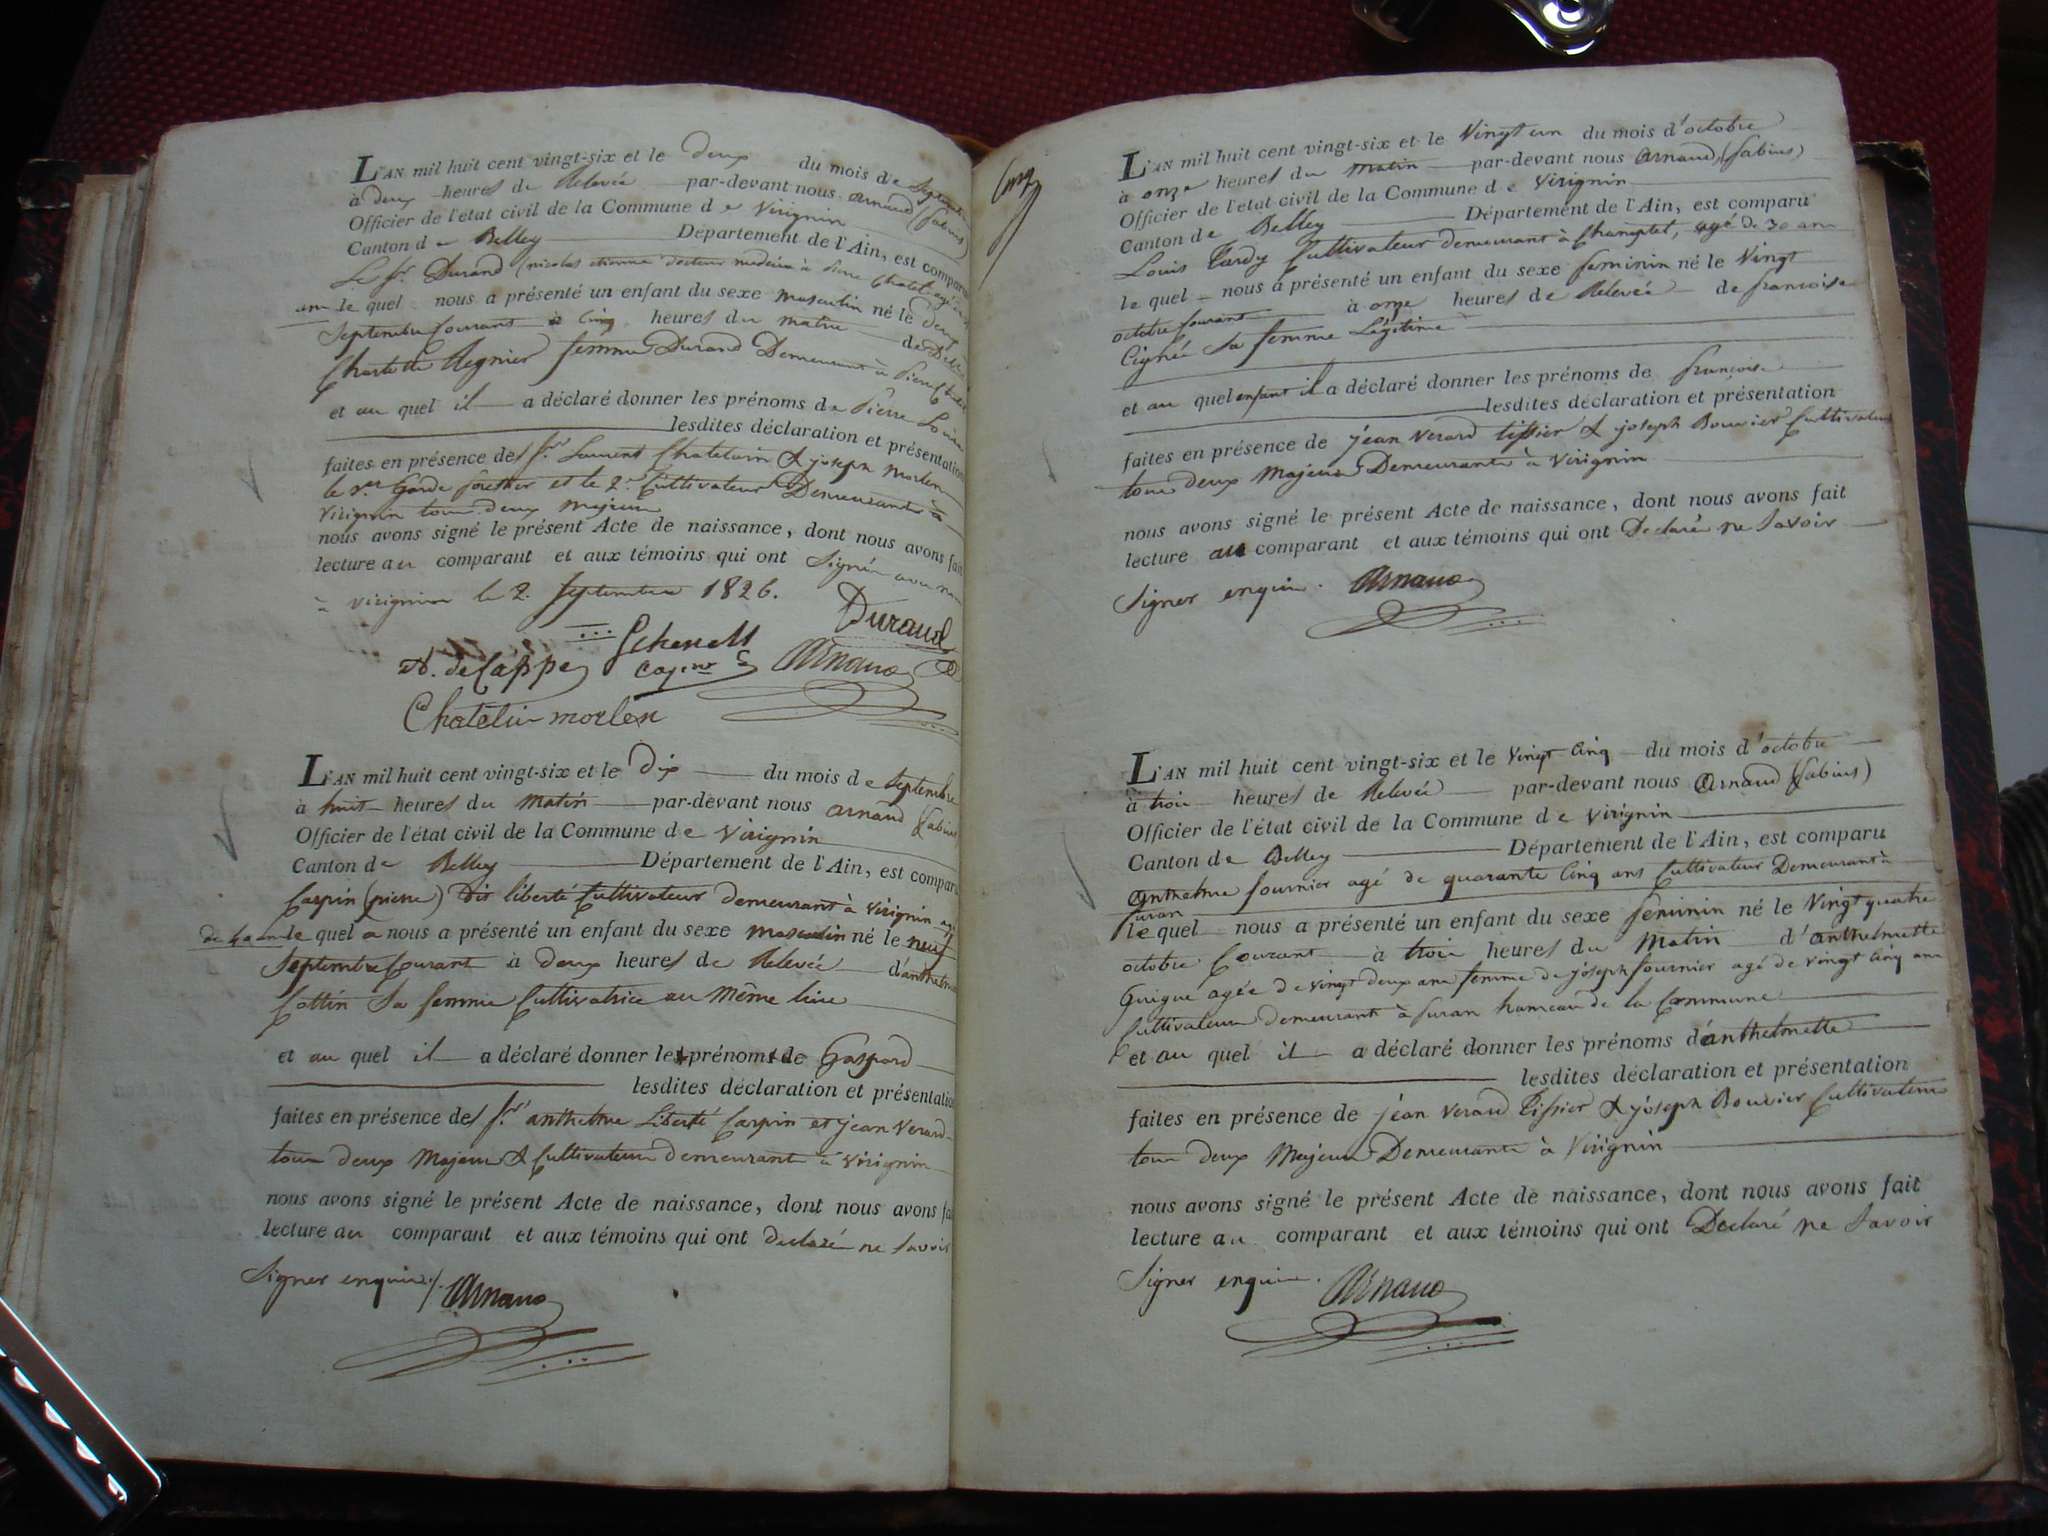 L'AN mil huit cent vingt-six et le deux du mois de septembre
à deux heures de Relevée par-devant nous arnaud (fabius)
Officier de l'état civil de la Commune de Virignin
Canton de Belley Département de l'Ain, est comparu
Le Sr. Durand (nicolas etienne docteur medecin à Pierre Chatel agé
ans le quel nous a présenté un enfant du sexe masculin né le deux
septembre Courant à Cinq heures du matin de
Charlotte Regnier femme Durand Demeurant à Pierre Chatel
et au quel il a déclaré donner les prénoms de Pierre Louis
lesdites déclaration et présentation
faites en présence des Srs. Laurent Chatelain & joseph Morlen
le 1er Garde forestier et le 2e. Cultivateur Demeurants à
Virignin tous deux majeurs
nous avons signé le présent Acte de naissance, dont nous avons fait
lecture au comparant et aux témoins qui ont Signé avec nous
à Virignin le 2. Septembre 1826.
Durand
Schenell
A. deCappe Capne Arnaud
Chatelin morlen
L'AN mil huit cent vingt-six et le Dix du mois de septembre
à huit heures du Matin par-devant nous arnaud (fabius)
Officier de l'état civil de la Commune de Virignin
Canton de Belley Département de l'Ain, est comparu
Carpin (pierre) dit liberté Cultivateur demeurant à Virignin agé
de 40 ans le quel a nous a présenté un enfant du sexe masculin né le neuf
Septembre Courant à deux heures de Relevée d'anthelmette
Cottin Sa femme Cultivatrice au Même lieu
et au quel il a déclaré donner les prénoms de Gaspard
lesdites déclaration et présentation
faites en présence des Srs. anthelme Liberté Carpin et jean Verard
tous deux Majeurs & Cultivateurs demeurants à Virignin
nous avons signé le présent Acte de naissance, dont nous avons fait
lecture au comparant et aux témoins qui ont declaré ne Savoir
Signer enquis. Arnaud
L'AN mil huit cent vingt-six et le Vingt un du mois d'octobre
à onze heures du Matin par-devant nous Arnaud (fabius)
Officier de l'état civil de la Commune de Virignin
Canton de Belley Département de l'Ain, est comparu
Louis Tardy Cultivateur demeurant à Champtel, agé de 30 ans
le quel nous a présenté un enfant du sexe feminin né le Vingt
octobre Courant à onze heures de Relevée de francoise
Cignée Sa femme Légitime
et au quel enfant il a déclaré donner les prénoms de françoise
lesdites déclaration et présentation
faites en présence de jean Verard tissier & joseph Bouvier Cultivateur
tous deux Majeurs Demeurants à Virignin
nous avons signé le présent Acte de naissance, dont nous avons fait
lecture au comparant et aux témoins qui ont Declaré ne Savoir
Signer enquis. Arnaud
L'AN mil huit cent vingt-six et le Vingt Cinq du mois d'octobre
à trois heures de Relevée par-devant nous Arnaud (fabius)
Officier de l'état civil de la Commune de Virignin
Canton de Belley Département de l'Ain, est comparu
Anthelme fournier agé de quarante Cinq ans Cultivateur Demeurant à
furan
le quel nous a présenté un enfant du sexe feminin né le Vingt quatre
octobre Courant à trois heures du Matin d'anthelmette
Guigue agée de vingt deux ans femme de joseph fournier agé de vingt Cinq ans
Cultivateurs demeurants à furan hameau de la Commune
et au quel il a déclaré donner les prénoms d'anthelmette
lesdites déclaration et présentation
faites en présence de jean Verard Tissier & joseph Bouvier Cultivateur
tous deux Majeurs Demeurants à Virignin
nous avons signé le présent Acte de naissance, dont nous avons fait
lecture au comparant et aux témoins qui ont Declaré ne Savoir
Signer enquis. Arnaud